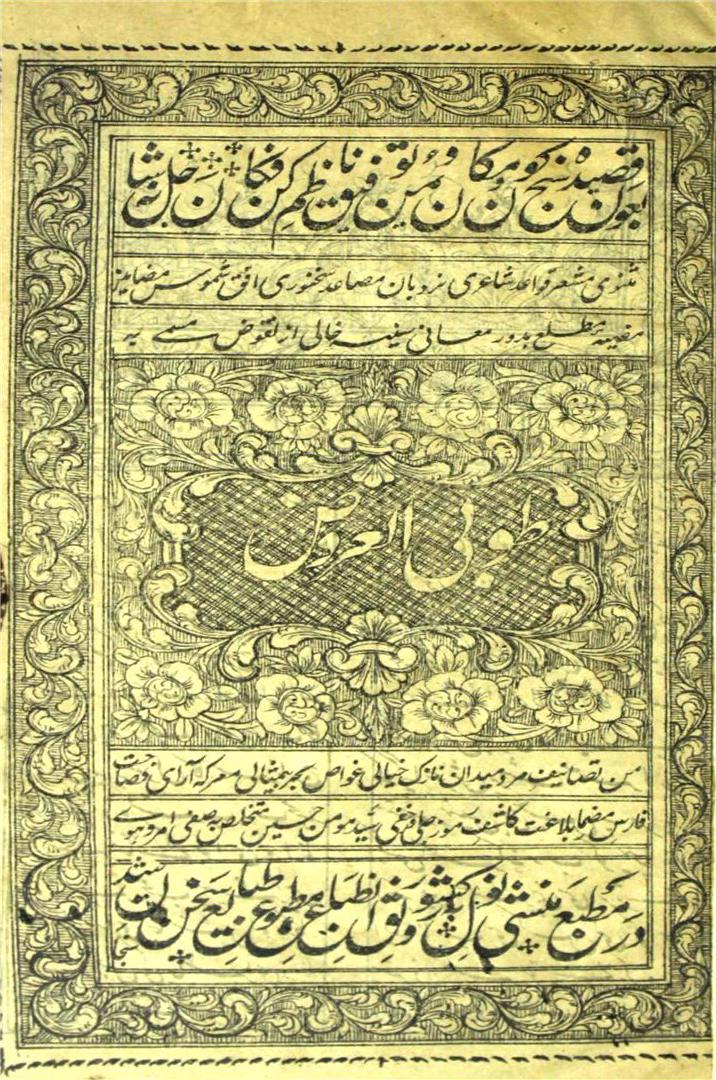 بعون قصیده سنج کون و مکان و یمن توفیق ناظم کن فکان جل شانه
مثنوی مشعر قواعد شاعری نردبان مصاعد سخنوری افق شموس مضامین
منیفه مطلع بدور معانی سنیه خالی از نقوض مسمے به
طوبی العروض
من تصانیف مرد میدان نازک خیالی غواص بحر بیمثالی معرکه آرای فصاحت
فارس مضمار بلاغت کاشف رموز جلی و خفی سید مومن حسین متخلص به صفی امروهوے
در مطبع منشی نولکشور رونق انطباع مطبوع طبایع سخن سنجان شد